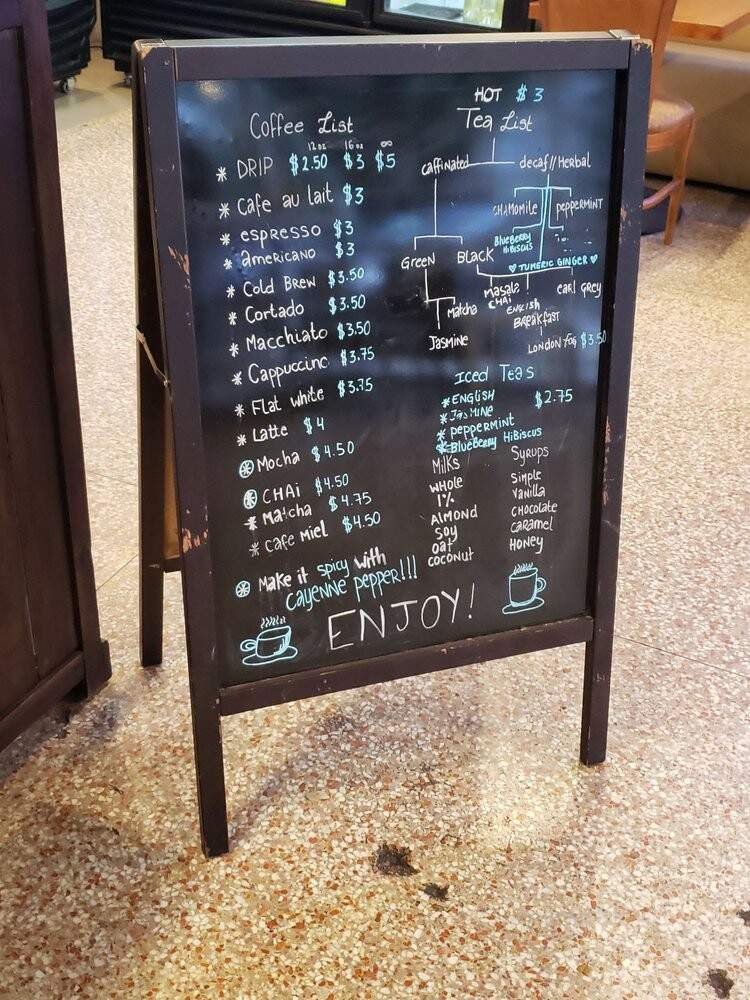 Coffee List
12oz 16oz ∞
* DRIP $2.50 $3 $5
* Cafe au lait $3
* espresso $3
* americano $3
* Cold Brew $3.50
* Cortado $3.50
* Macchiato $3.50
* Cappuccino $3.75
* Flat white $3.75
* Latte $4
* Mocha $4.50
* CHAi $4.50
* Matcha $4.75
* cafe Miel $4.50
* Make it spicy with
cayenne pepper!!!
ENJOY!
HOT $3
Tea List
caffinated decaf//Herbal
CHAMOMile peppermiNT
BlueBeRRy
HiBiscus
♥ TUMERIC GINGER ♥
Green Black
Matcha
Jasmine
Masala
CHAi
eaRl GRey
ENGLisH
BReakfast
LONDON FOG $3.50
Iced Teas
* ENGLiSH $2.75
* JasMINE
* PePPeRMiNT
* BlueBeRRy HiBiscus
Milks
WHOle
1%
AlMOND
Soy
oat
coconut
Syrups
Simple
Vanilla
CHOCOLate
caRamel
HONey